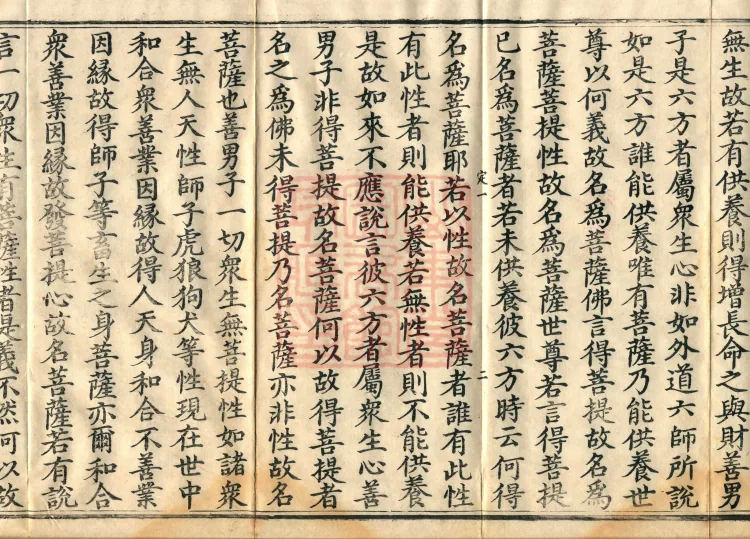 無生故若有供養則得增長命之與財善男
子是六方者屬衆生心非如外道六師所說
如是六方誰能供養唯有菩薩乃能供養世
尊以何義故名爲菩薩佛言得菩提故名爲
菩薩菩提性故名爲菩薩世尊若言得菩提
已名爲菩薩者若未供養彼六方時云何得
定一 二
名爲菩薩耶若以性故名菩薩者誰有此性
有此性者則能供養若無性者則不能供養
是故如來不應說言彼六方者屬衆生心善
男子非得菩提故名菩薩何以故得菩提者
名之爲佛未得菩提乃名菩薩亦非性故名
菩薩也善男子一切衆生無菩提性如諸衆
生無人天性師子虎狼狗犬等性現在世中
和合衆善業因緣故得人天身和合不善業
因緣故得師子等畜生之身菩薩亦爾和合
衆善業因緣故發菩提心故名菩薩若有說
言一切衆生有菩薩性者是義不然何以故